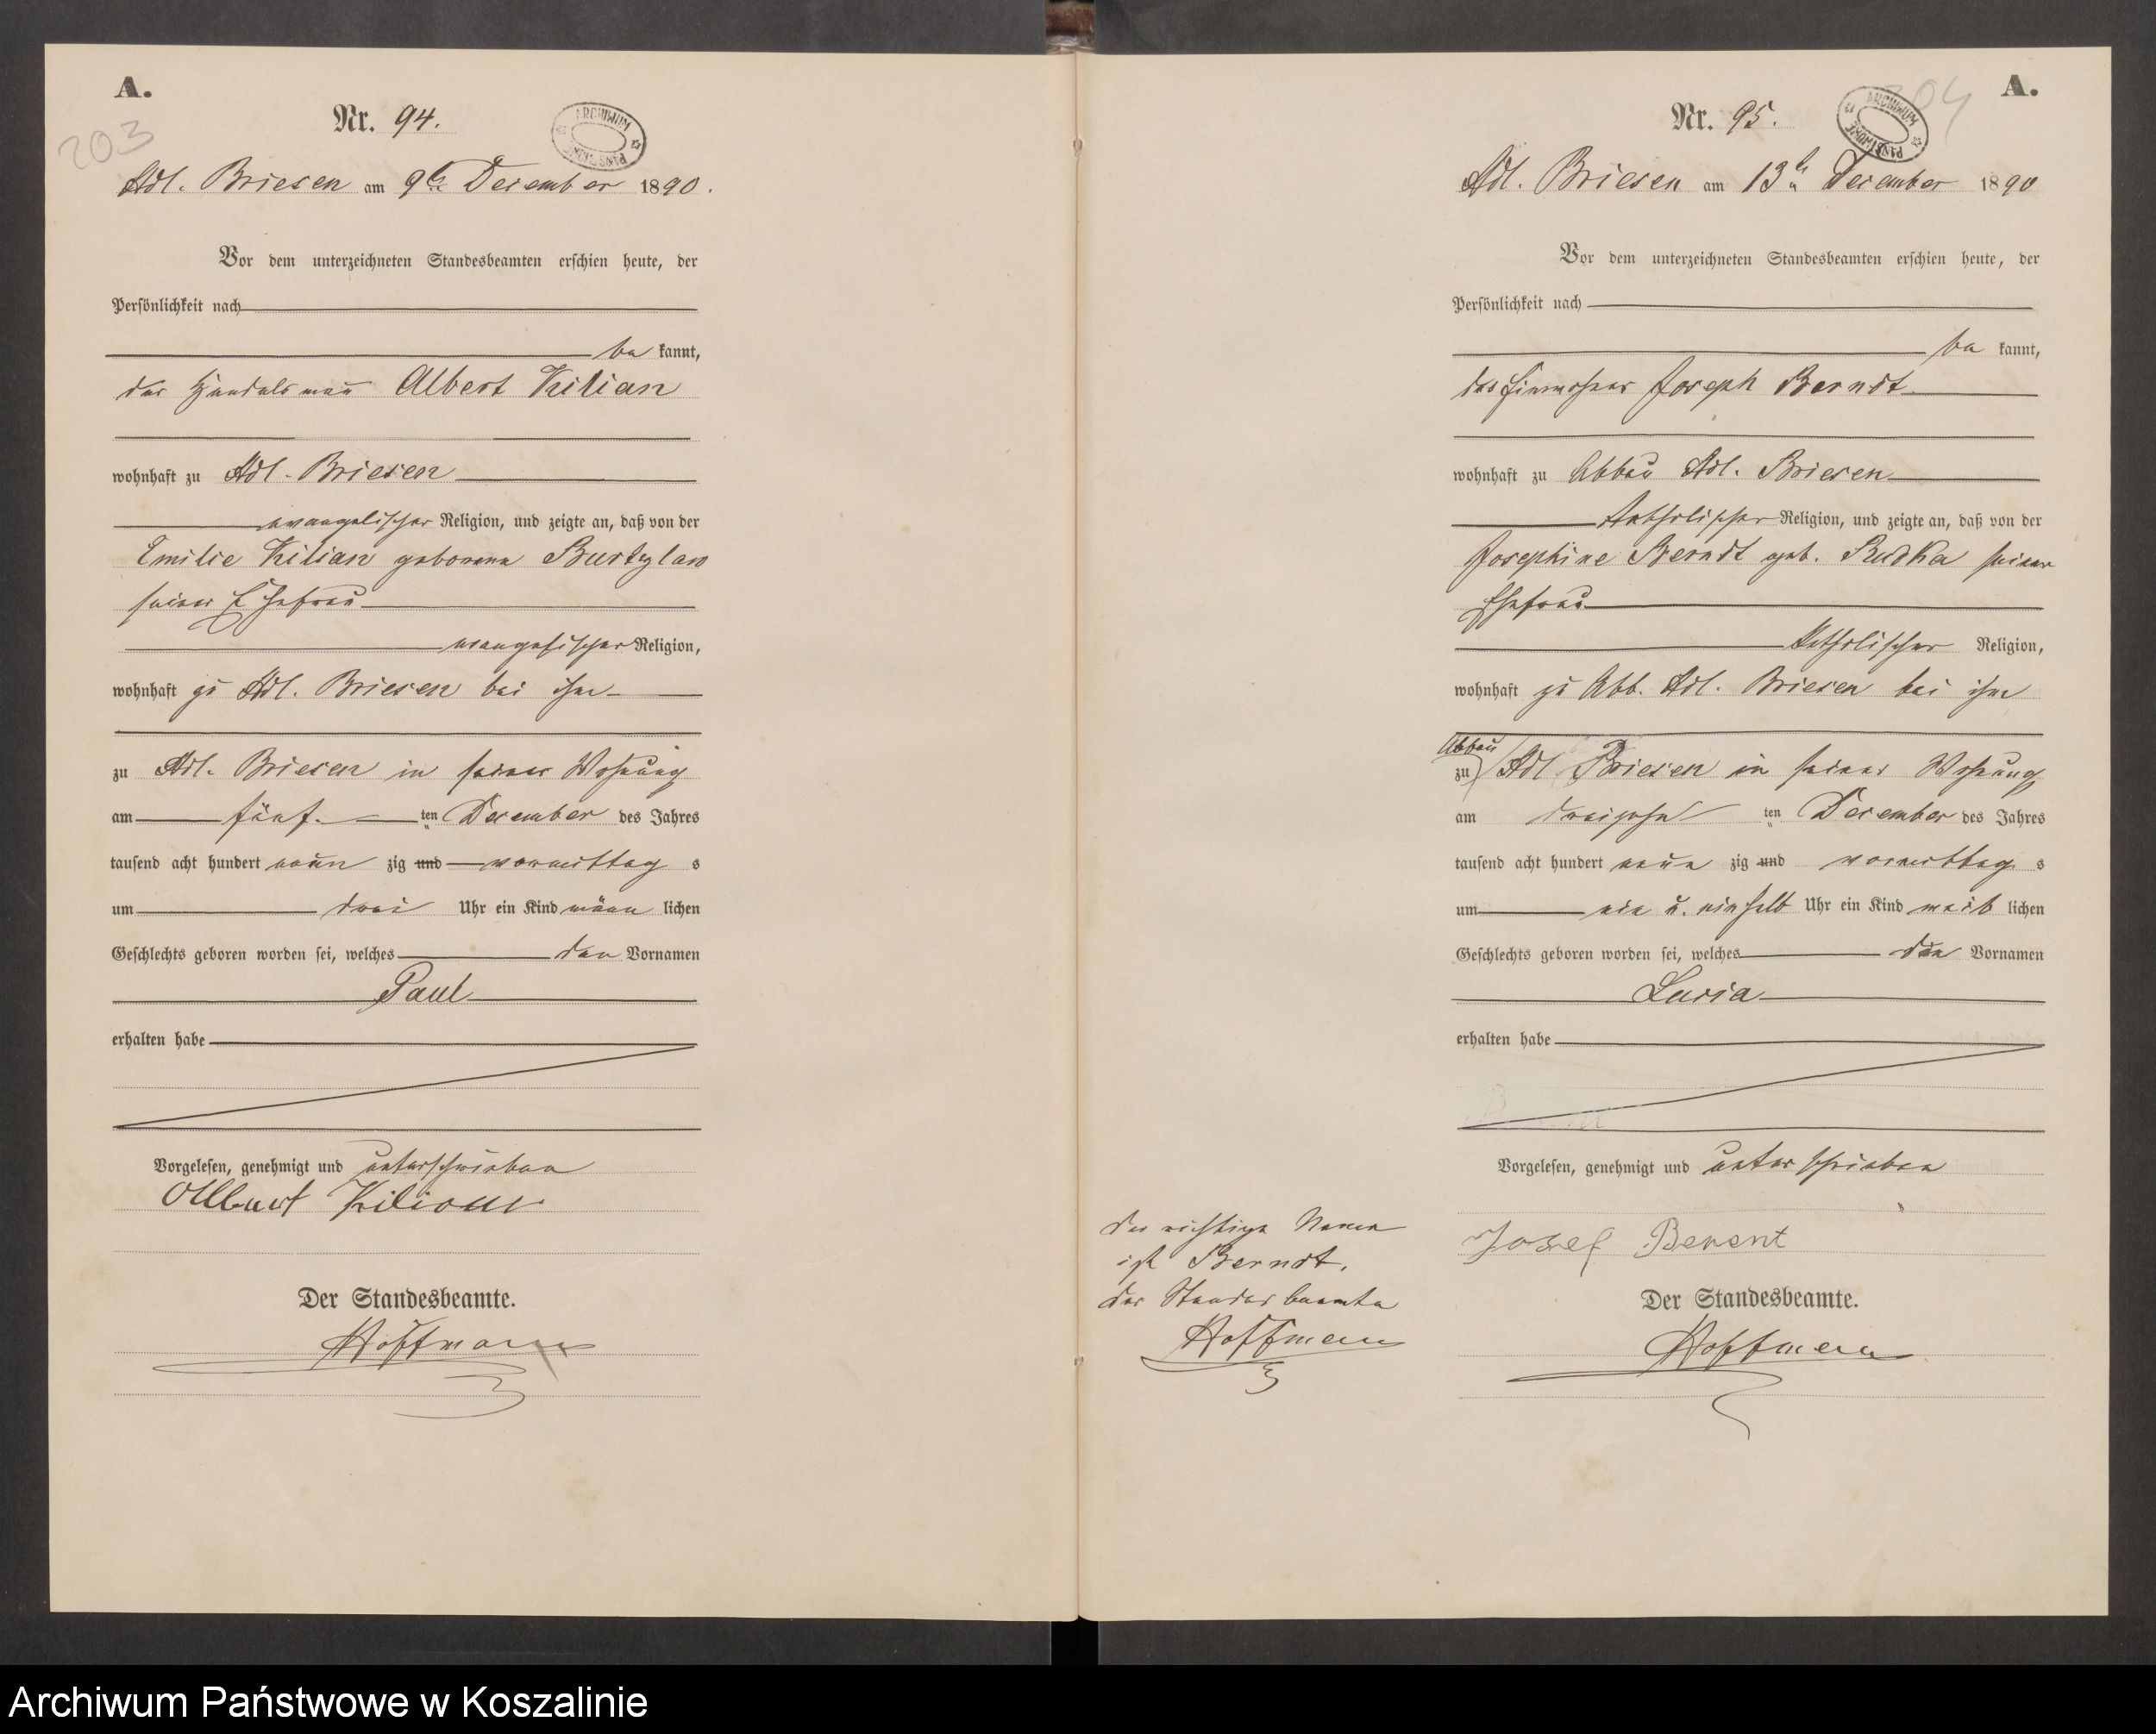 A.
203
Nr. 94.
ARCHIWUM PAŃSTWOWE
Adl. Briesen am 9ten December 1890.
Vor dem unterzeichneten Standesbeamten erschien heute, der
Persönlichkeit nach
be kannt,
der Handelsmann Albert Kilian
wohnhaft zu Adl. Briesen
evangelischer Religion, und zeigte an, daß von der
Emilie Kilian geborene
seiner Ehefrau
evangelischer Religion,
wohnhaft zu Adl. Briesen bei ihm
zu Adl. Briesen in seiner Wohnung
am fünf ten December des Jahres
tausend acht hundert neun zig und vormittag s
um drei Uhr ein Kind männ lichen
Geschlechts geboren worden sei, welches den Vornamen
Paul
erhalten habe
Vorgelesen, genehmigt und unterschrieben
Albert Kilian
Der Standesbeamte.
Hoffmann
A.
204
Nr. 95.
ARCHIWUM PAŃSTWOWE
Adl. Briesen am 13ten December 1890
Vor dem unterzeichneten Standesbeamten erschien heute, der
Persönlichkeit nach
be kannt,
der Einwohner Joseph Berndt
wohnhaft zu Abbau Adl. Briesen
katholischer Religion, und zeigte an, daß von der
Josephine Berndt geb. Rudka seiner
Ehefrau
katholischer Religion,
wohnhaft zu Abb. Adl. Briesen bei ihm
Abbau
zu Adl Briesen in seiner Wohnung
am dreizehn ten December des Jahres
tausend acht hundert neun zig und vormittag s
um ein u. einhalb Uhr ein Kind weib lichen
Geschlechts geboren worden sei, welches den Vornamen
Lucia
erhalten habe
Vorgelesen, genehmigt und unterschrieben
Josef Berent
Der Standesbeamte.
Hoffmann
Der richtige Name
ist Berndt.
Der Standesbeamte
Hoffmann
Archiwum Państwowe w Koszalinie